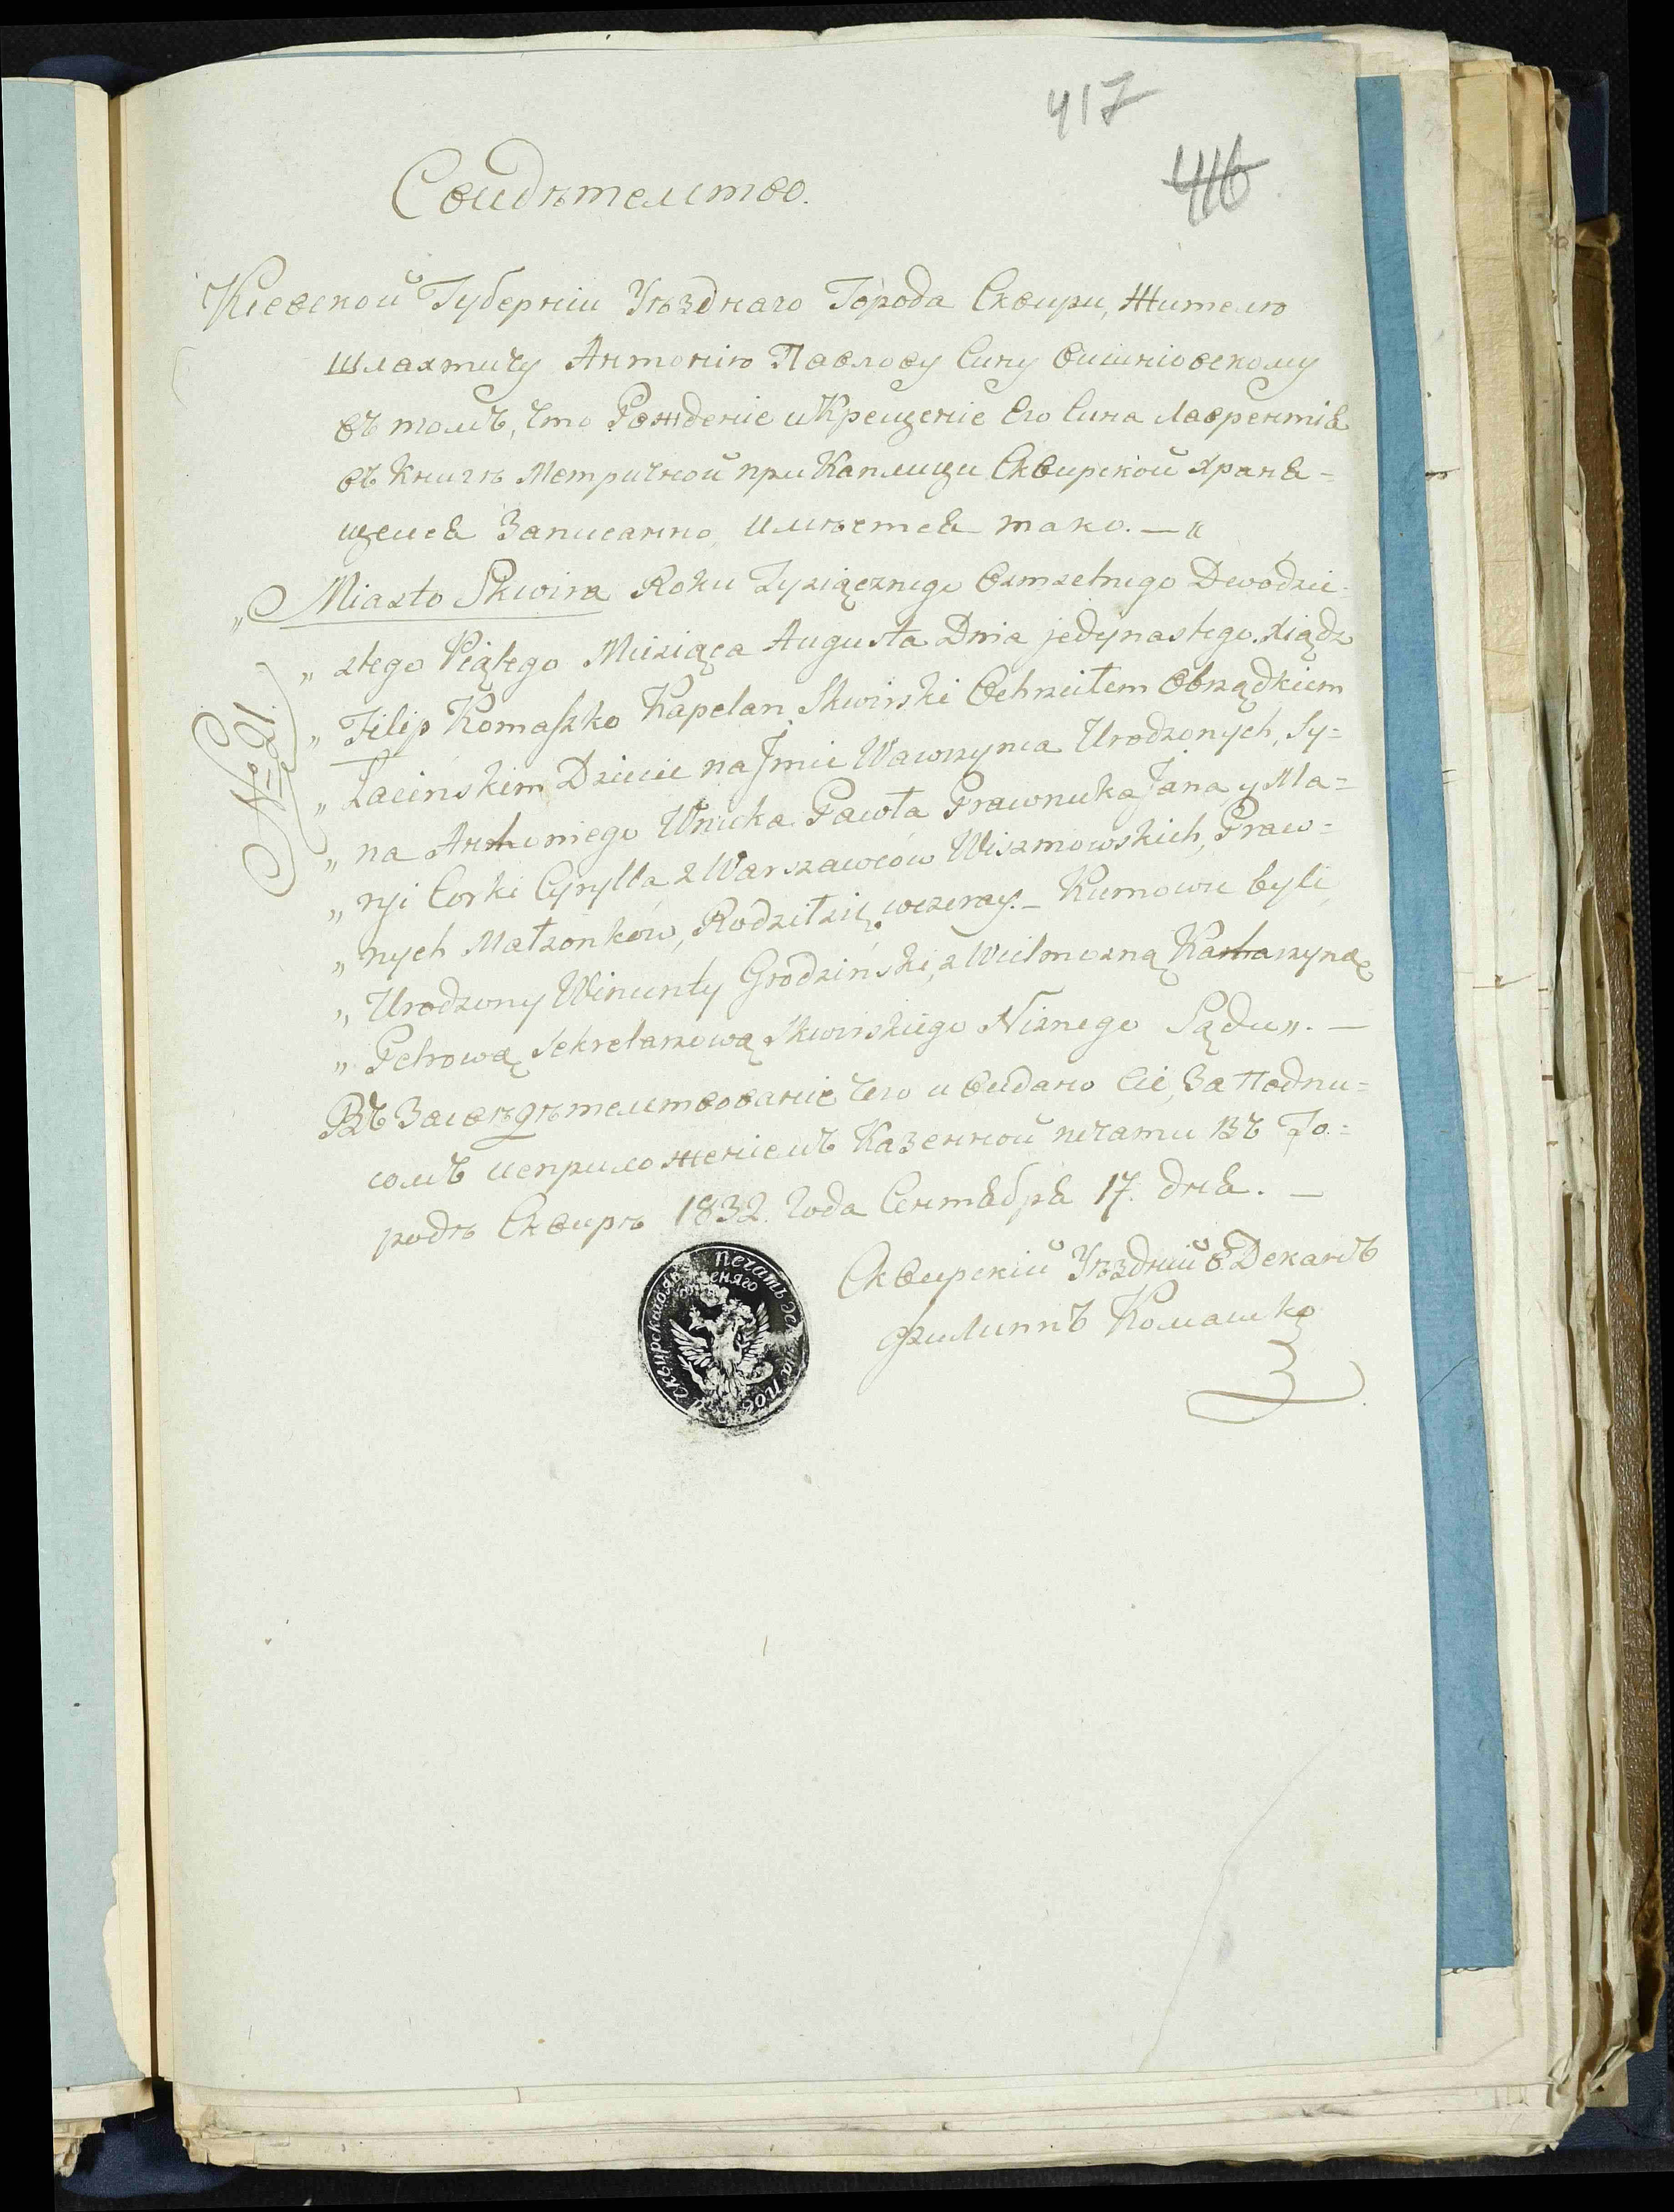 417
416
Свидѣтелство.
Кіевской Губерніи Уѣзднаго Города Сквири, Жителю
шляхтичу Антонію Павлову Сину Вишніовскому
въ томъ, что Рожденіе и Крещеніе Его Сина Лаврентія
въ Книгѣ Метричной при Каплици Сквирской храня=
щейся Записанно, имѣется тако. — "
„ Miasto Skwira Roku Tysiącznego Osmsetnego Dwódzie=
„ stego Piątego Miesiąca Augusta Dnia jedynastego. Xiądz
№ 91.
„ Filip Komaszko Kapelan Skwirski Ochrzciłem Obrządkiem
„ Łacińskim Dziecie na Jmie Wawrzynca Urodzonych, Sy=
„ na Antoniego Wnuka Pawła Prawnuka Jana y Ma=
„ ryi Corki Cyrylla z Warszawców Wiszniowskich, Praw=
„ nych Małzonków, Rodziłsię wczeray. — Kumowie byli,
„ Urodzony Wincenty Grodziński, z Wielmozną Katarzyną
„ Petrową Sekretarzową Skwirskiego Niznego Sądu „. —
Въ Засвѣдѣтелствованіе Чего и видано Сіе, За Подпи=
сомъ исприложеніемъ Казенной печати Въ Го=
родѣ Сквирѣ 1832. Года Сентября 17. дня. —
Сквирскій Уѣздний Деканъ
Филиппъ Комашко
Печать